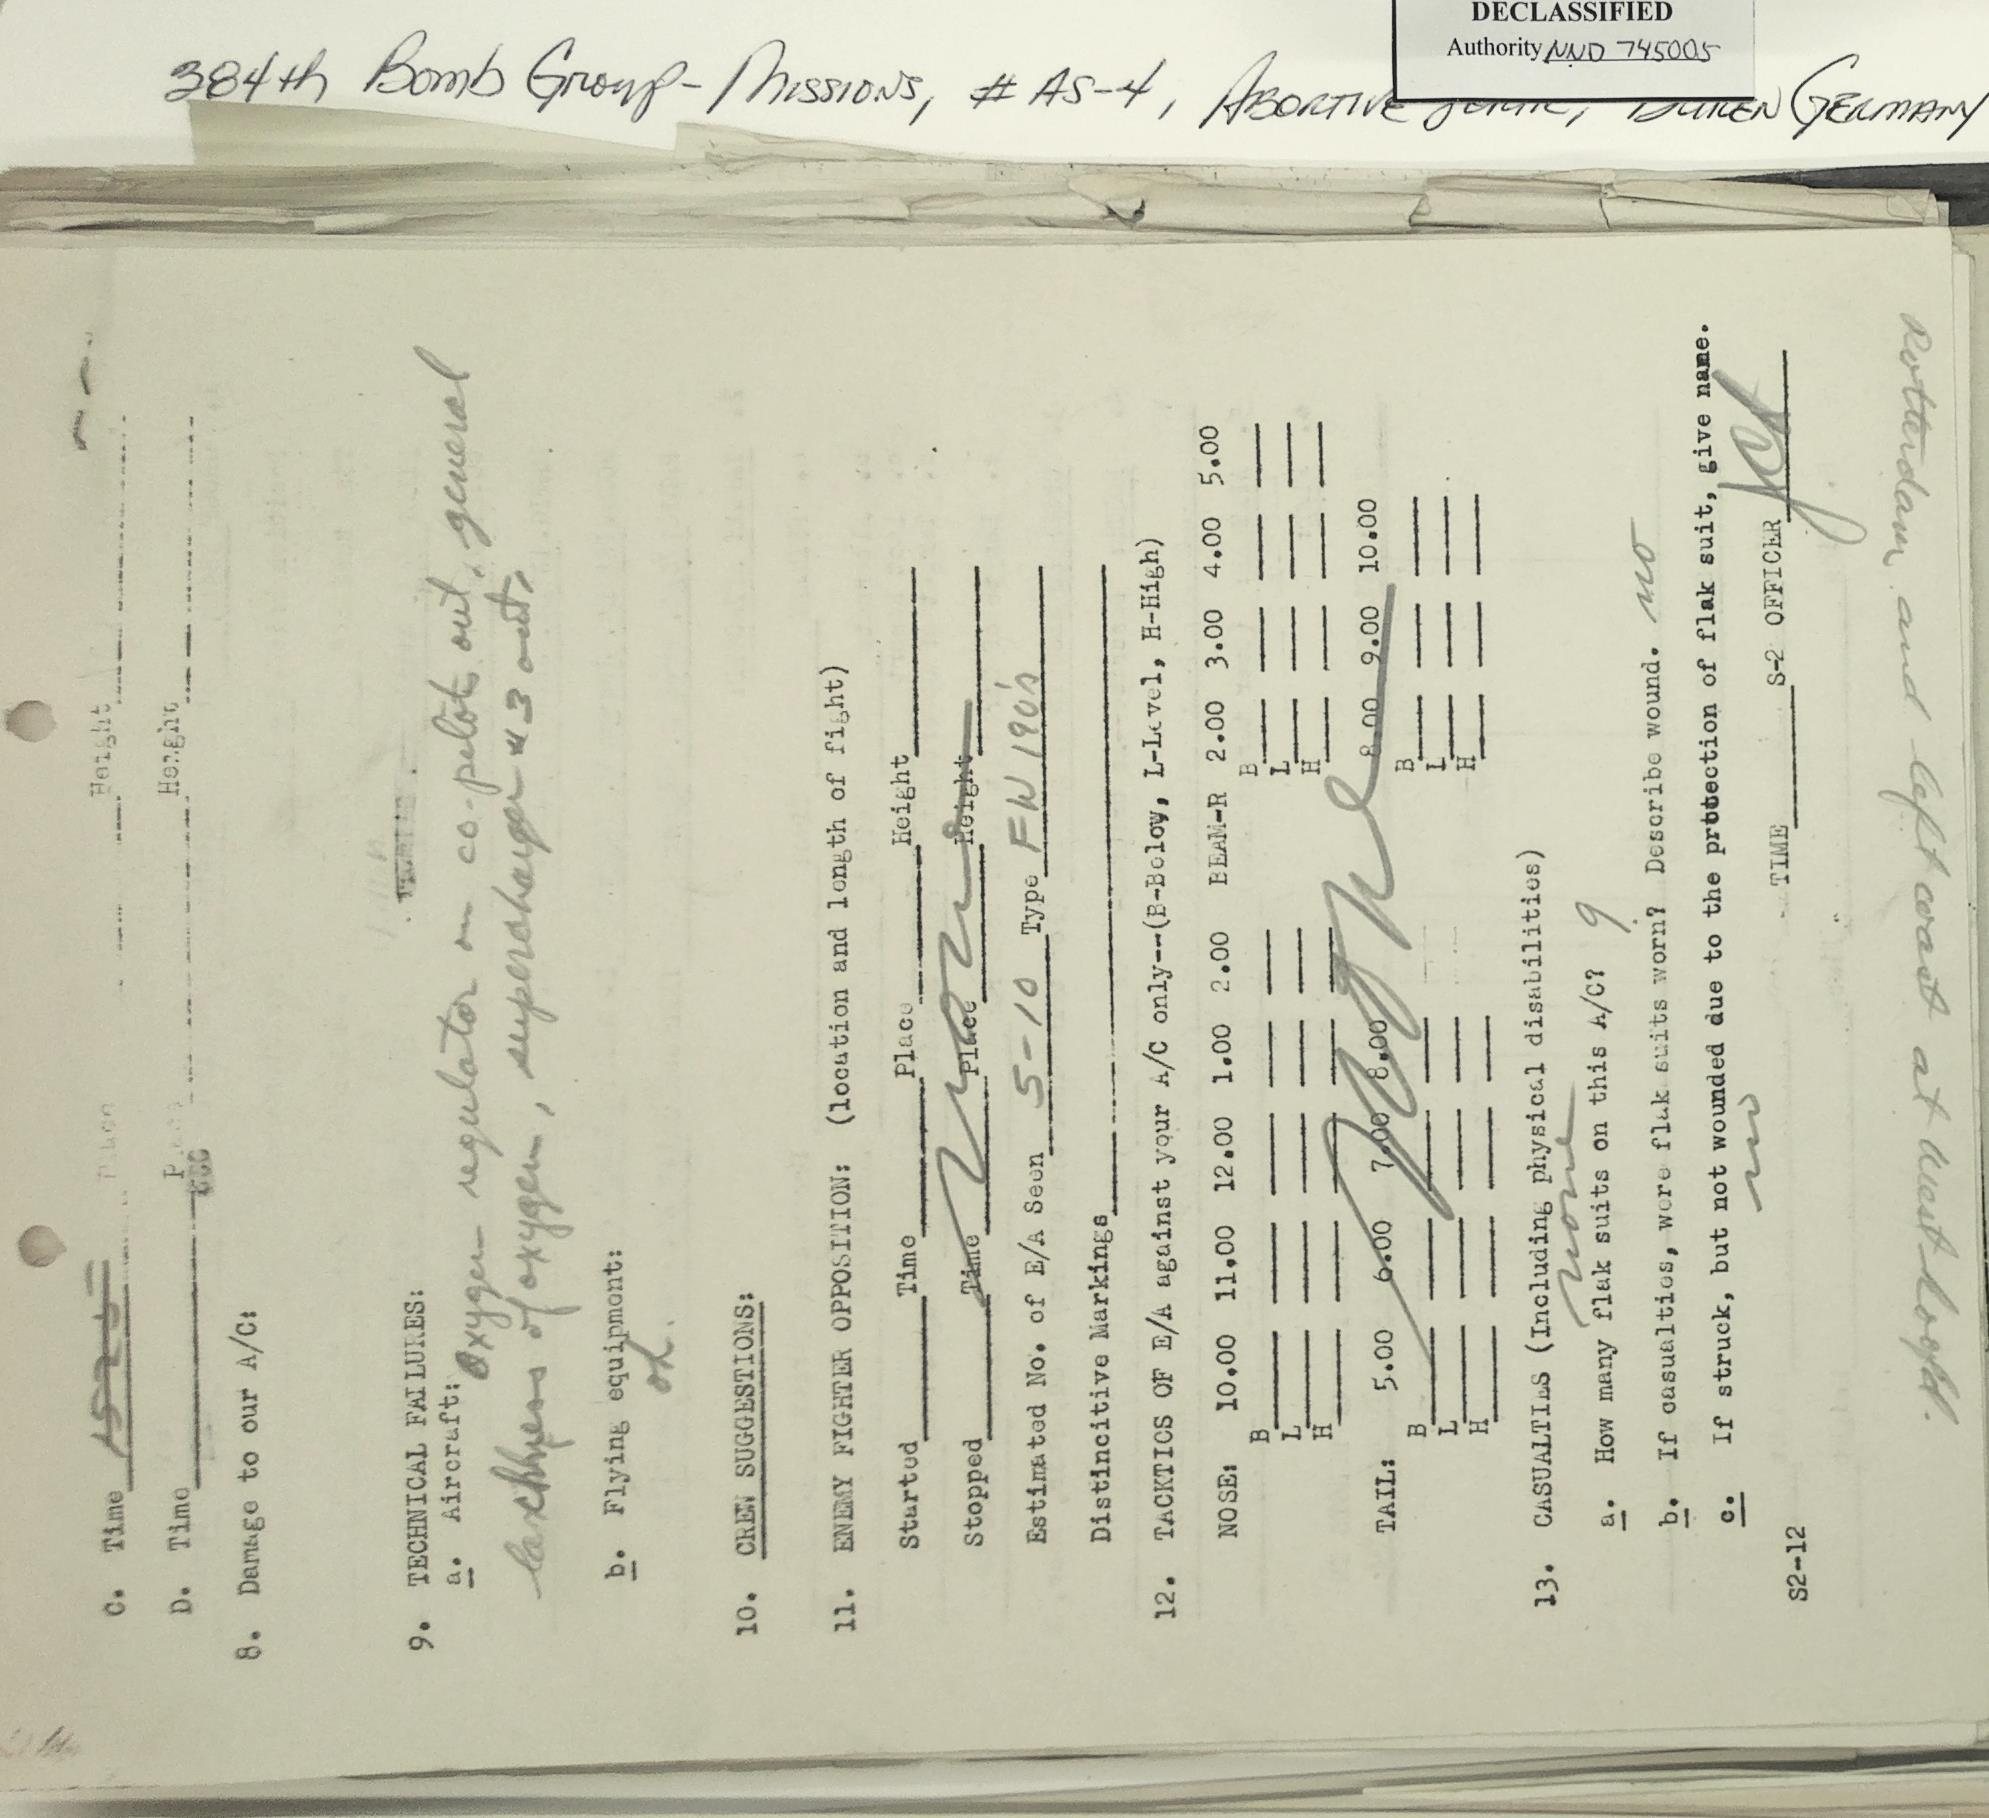 DECLASSIFIED
Authority NND 745005
384th Bomb Group - Missions, # AS-4, Abortive Sortie, Duren Germany
C. Time 1525 Height
D. Time Height
8. Damage to our A/C:
9. TECHNICAL FAILURES:
a. Aircraft: Oxygen regulator on co-pilot out, general
of oxygen, supercharger #3 out,
b. Flying equipment:
ok.
10. CREW SUGGESTIONS:
11. ENEMY FIGHTER OPPOSITION: (location and length of fight)
Started Time Place Height
Stopped Time Place Height
Estimated No. of E/A Seen 5-10 Type FW 190's
Distincitive Markings
12. TACKTICS OF E/A against your A/C only--(B-Below, L-Level, H-High)
NOSE: 10.00 11.00 12.00 1.00 2.00 BEAM-R 2.00 3.00 4.00 5.00
B B
L L
H H
TAIL: 5.00 6.00 7.00 8.00 8.00 9.00 10.00
B B
L L
H H
None
13. CASUALTIES (Including physical disabilities)
none
a. How many flak suits on this A/C? 9
b. If casualties, were flak suits worn? Describe wound. no
c. If struck, but not wounded due to the protection of flak suit, give name.
no
TIME S-2 OFFICER
S2-12
Rotterdam and left coast at